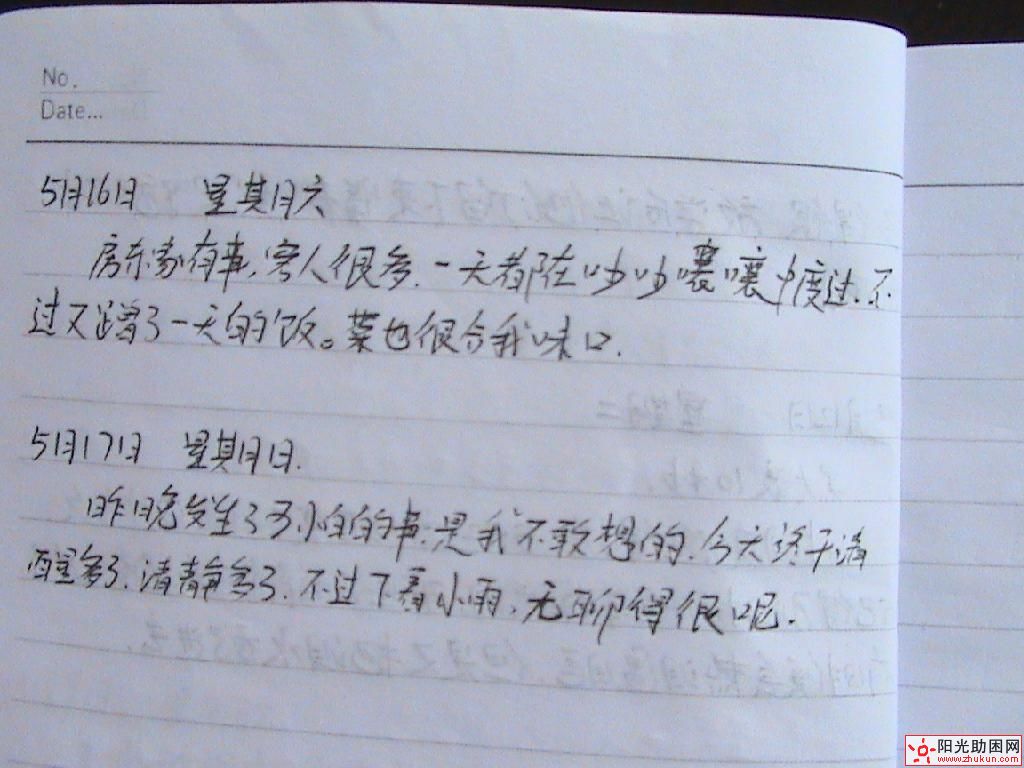 No.
Date...
5月16日 星期六
房东家有事,客人很多.一天都在吵吵嚷嚷中度过.不
过又蹭了一天的饭。菜也很合我味口.
5月17日 星期日.
昨晚发生了不小的的事.是我不敢想的.今天终于清
醒多了.清静多了.不过下着小雨.无聊得很呢.
阳光助困网
www.zhukun.com